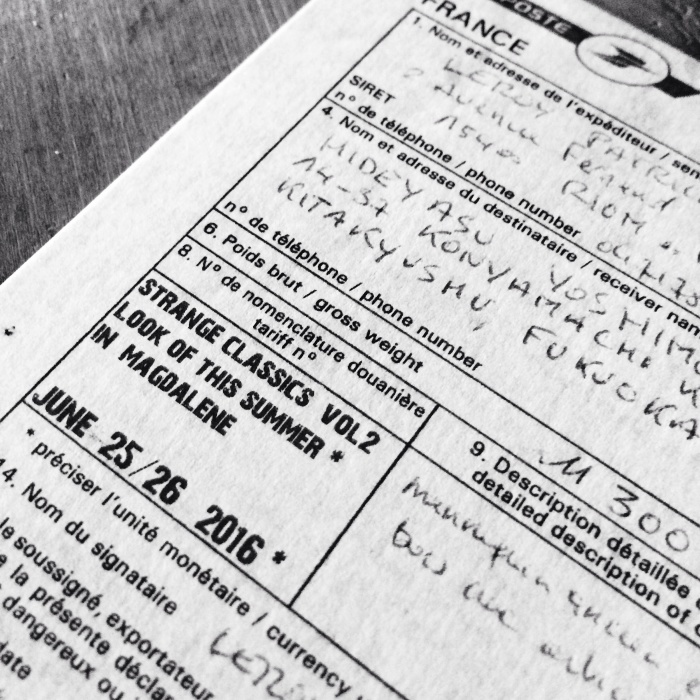 POSTE
FRANCE
1. Nom et adresse de l'expéditeur / sen
LEROY PATRIC
2 Avenue Fernand
15400 RIOM
SIRET
n° de téléphone / phone number
4. Nom et adresse du destinataire / receiver nam
HIDEYASU YOSHIMU
14-37 KONYAMACHI
KITAKYUSHU, FUKUOKA
n° de téléphone / phone number
6. Poids brut / gross weight
8. N° de nomenclature douanière
tariff n°
STRANGE CLASSICS VOL2
LOOK OF THIS SUMMER *
IN MAGDALENE
JUNE 25/26 2016 *
9. Description détaillée
detailed description of
M 300
mannequin ancien
bois
* préciser l'unité monétaire / currency
14. Nom du signataire
le soussigné, exportateur
la présente décla
dangereux ou
date
LERO